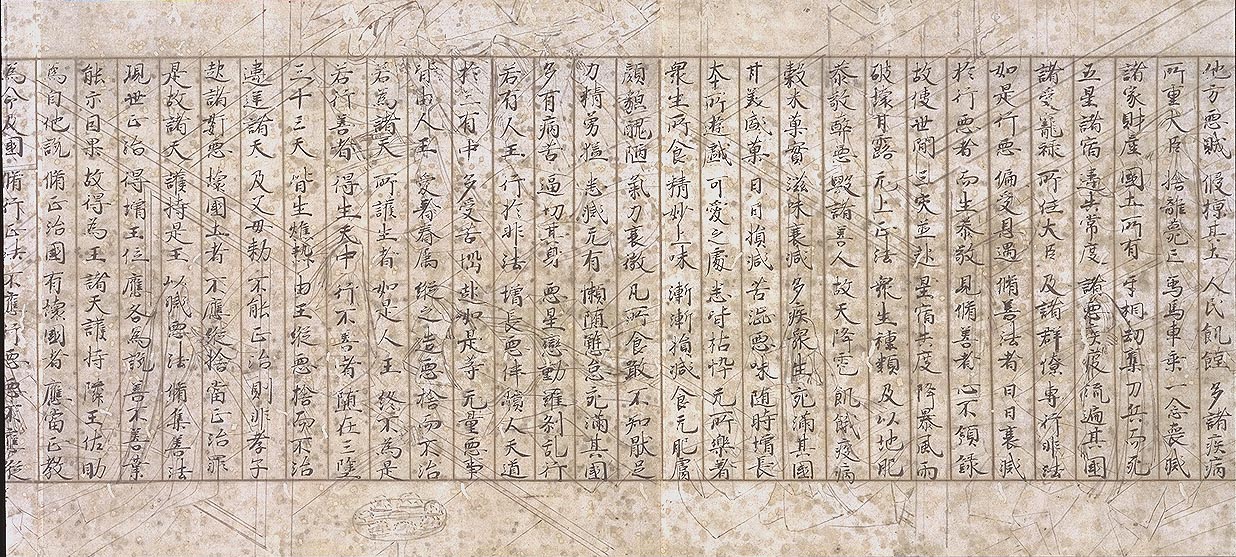 他方惡賊 侵掠其土 人民飢饉 多諸疾病
所重大臣 捨離薨亡 象馬車乘 一念喪滅
諸家財産 國土所有 互相劫奪 刀兵而死
五星諸宿 違失常度 諸惡疾疫 流遍其國
諸受寵祿 所任大臣 及諸群僚 專行非法
如是行惡 偏受恩遇 脩善法者 日日衰減
於行惡者 而生恭敬 見脩善者 心不顧錄
故使世間 三灾並起 星宿失度 降暴風雨
破壞甘露 无上正法 衆生種類 及以地肥
恭敬弊惡 毀諸善人 故天降雹 飢餓疫病
穀米菓實 滋味衰減 多疾衆生 充滿其國
甘美盛菓 日日損減 苦澁惡味 隨時增長
本所遊戲 可愛之處 悉皆枯悴 无所樂者
衆生所食 精妙上味 漸漸損減 食无肥膚
顏貌醜陋 氣力衰微 凡所食噉 不知厭足
力精勇猛 悉滅无有 懶墮懈怠 充滿其國
多有病苦 逼切其身 惡星變動 羅剎亂行
若有人王 行於非法 增長惡伴 損人天道
於三有中 多受苦惱 起如是等 无量惡事
皆由人王 愛著眷屬 縱之造惡 捨而不治
若爲諸天 所護生者 如是人王 終不爲是
若行善者 得生天中 行不善者 墮在三塗
三十三天 皆生燋熱 由王縱惡 捨而不治
違逆諸天 及父母勅 不能正治 則非孝子
起諸奸惡 壞國土者 不應縱捨 當正治罪
是故諸天 護持是王 以滅惡法 脩集善法
現世正治 得增王位 應各爲說 善不善業
能示因果 故得爲王 諸天護持 隣王佐助
爲自他說 脩正治國 有壞國者 應當正教
爲命及國 脩行正法 不應行惡 惡不應縱